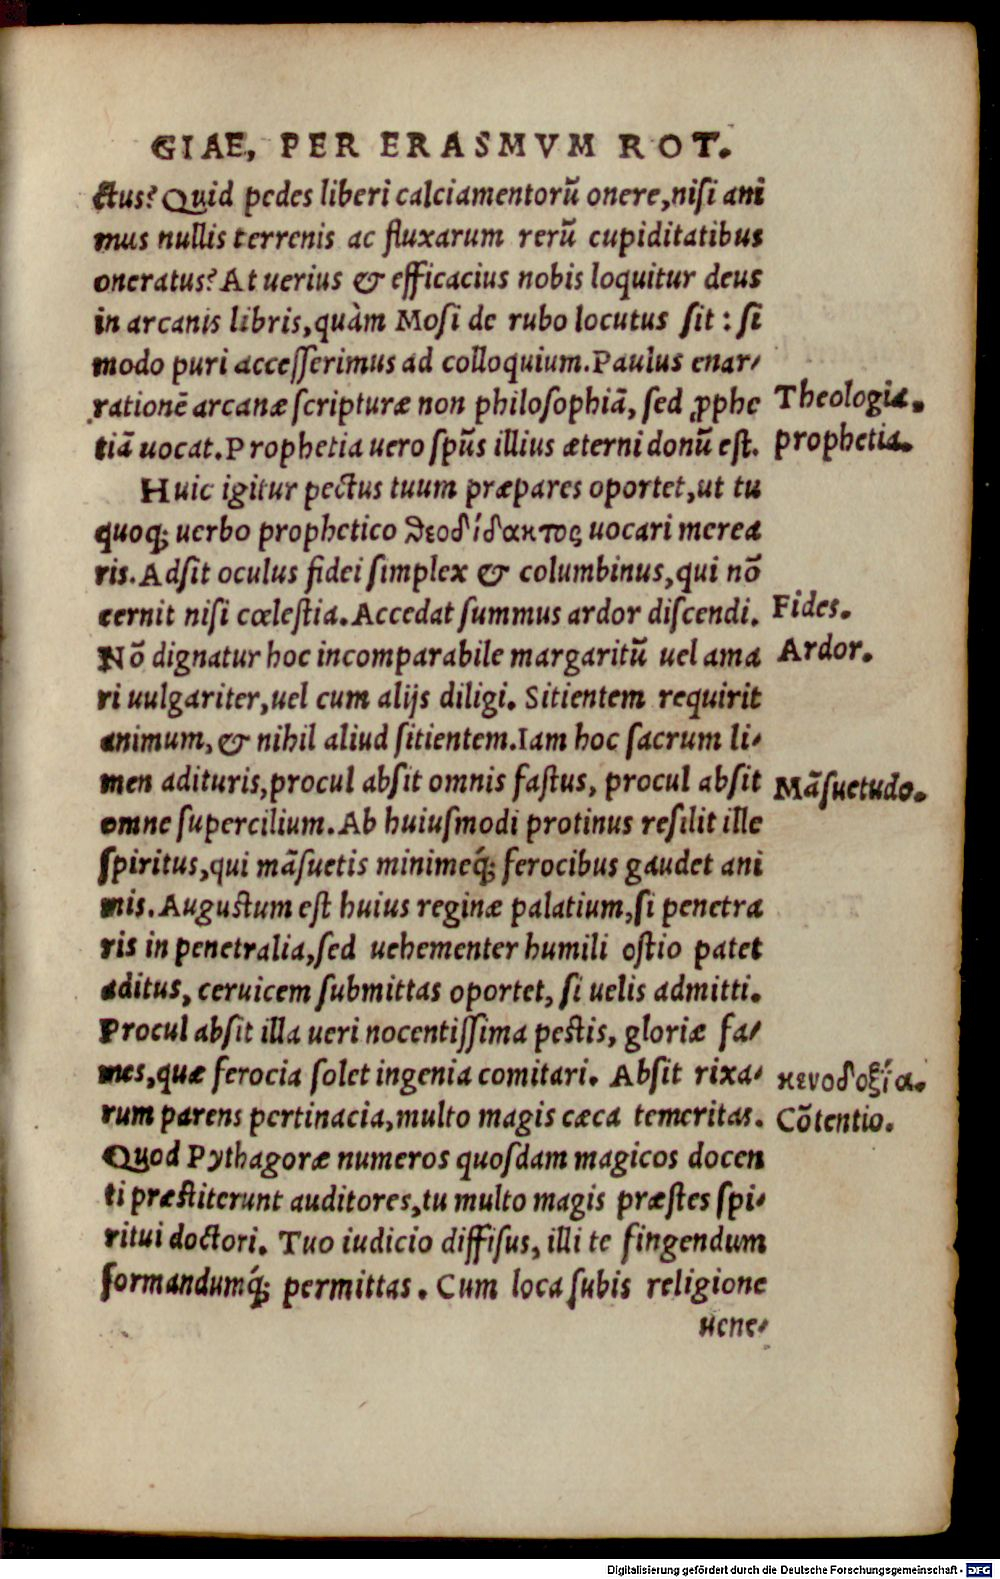 GIAE, PER ERASMVM ROT.
ctus? Quid pedes liberi calciamentorũ onere, nisi ani
mus nullis terrenis ac fluxarum rerũ cupiditatibus
oneratus? At uerius & efficacius nobis loquitur deus
in arcanis libris, quàm Mosi de rubo locutus sit: si
modo puri accesserimus ad colloquium. Paulus enar-
rationẽ arcanæ scripturæ non philosophiã, sed ꝓphe
Theologia.
tiã uocat. Prophetia uero spũs illius æterni donũ est.
prophetia.
Huic igitur pectus tuum præpares oportet, ut tu
quoq; uerbo prophetico θεοδίδακτος uocari merea
ris. Adsit oculus fidei simplex & columbinus, qui nõ
cernit nisi cœlestia. Accedat summus ardor discendi.
Fides.
Nõ dignatur hoc incomparabile margaritũ uel ama
Ardor.
ri uulgariter, uel cum alijs diligi. Sitientem requirit
animum, & nihil aliud sitientem. Iam hoc sacrum li-
men adituris, procul absit omnis fastus, procul absit
Mãsuetudo.
omne supercilium. Ab huiusmodi protinus resilit ille
spiritus, qui mãsuetis minimeq́; ferocibus gaudet ani
mis. Augustum est huius reginæ palatium, si penetra
ris in penetralia, sed uehementer humili ostio patet
aditus, ceruicem submittas oportet, si uelis admitti.
Procul absit illa ueri nocentissima pestis, gloriæ fa-
mes, quæ ferocia solet ingenia comitari. Absit rixa-
κενοδοξία.
rum parens pertinacia, multo magis cæca temeritas.
Cõtentio.
Quod Pythagoræ numeros quosdam magicos docen
ti præstiterunt auditores, tu multo magis præstes spi-
ritui doctori. Tuo iudicio diffisus, illi te fingendum
formandumq́; permittas. Cum loca subis religione
uene-
Digitalisierung gefördert durch die Deutsche Forschungsgemeinschaft - DFG